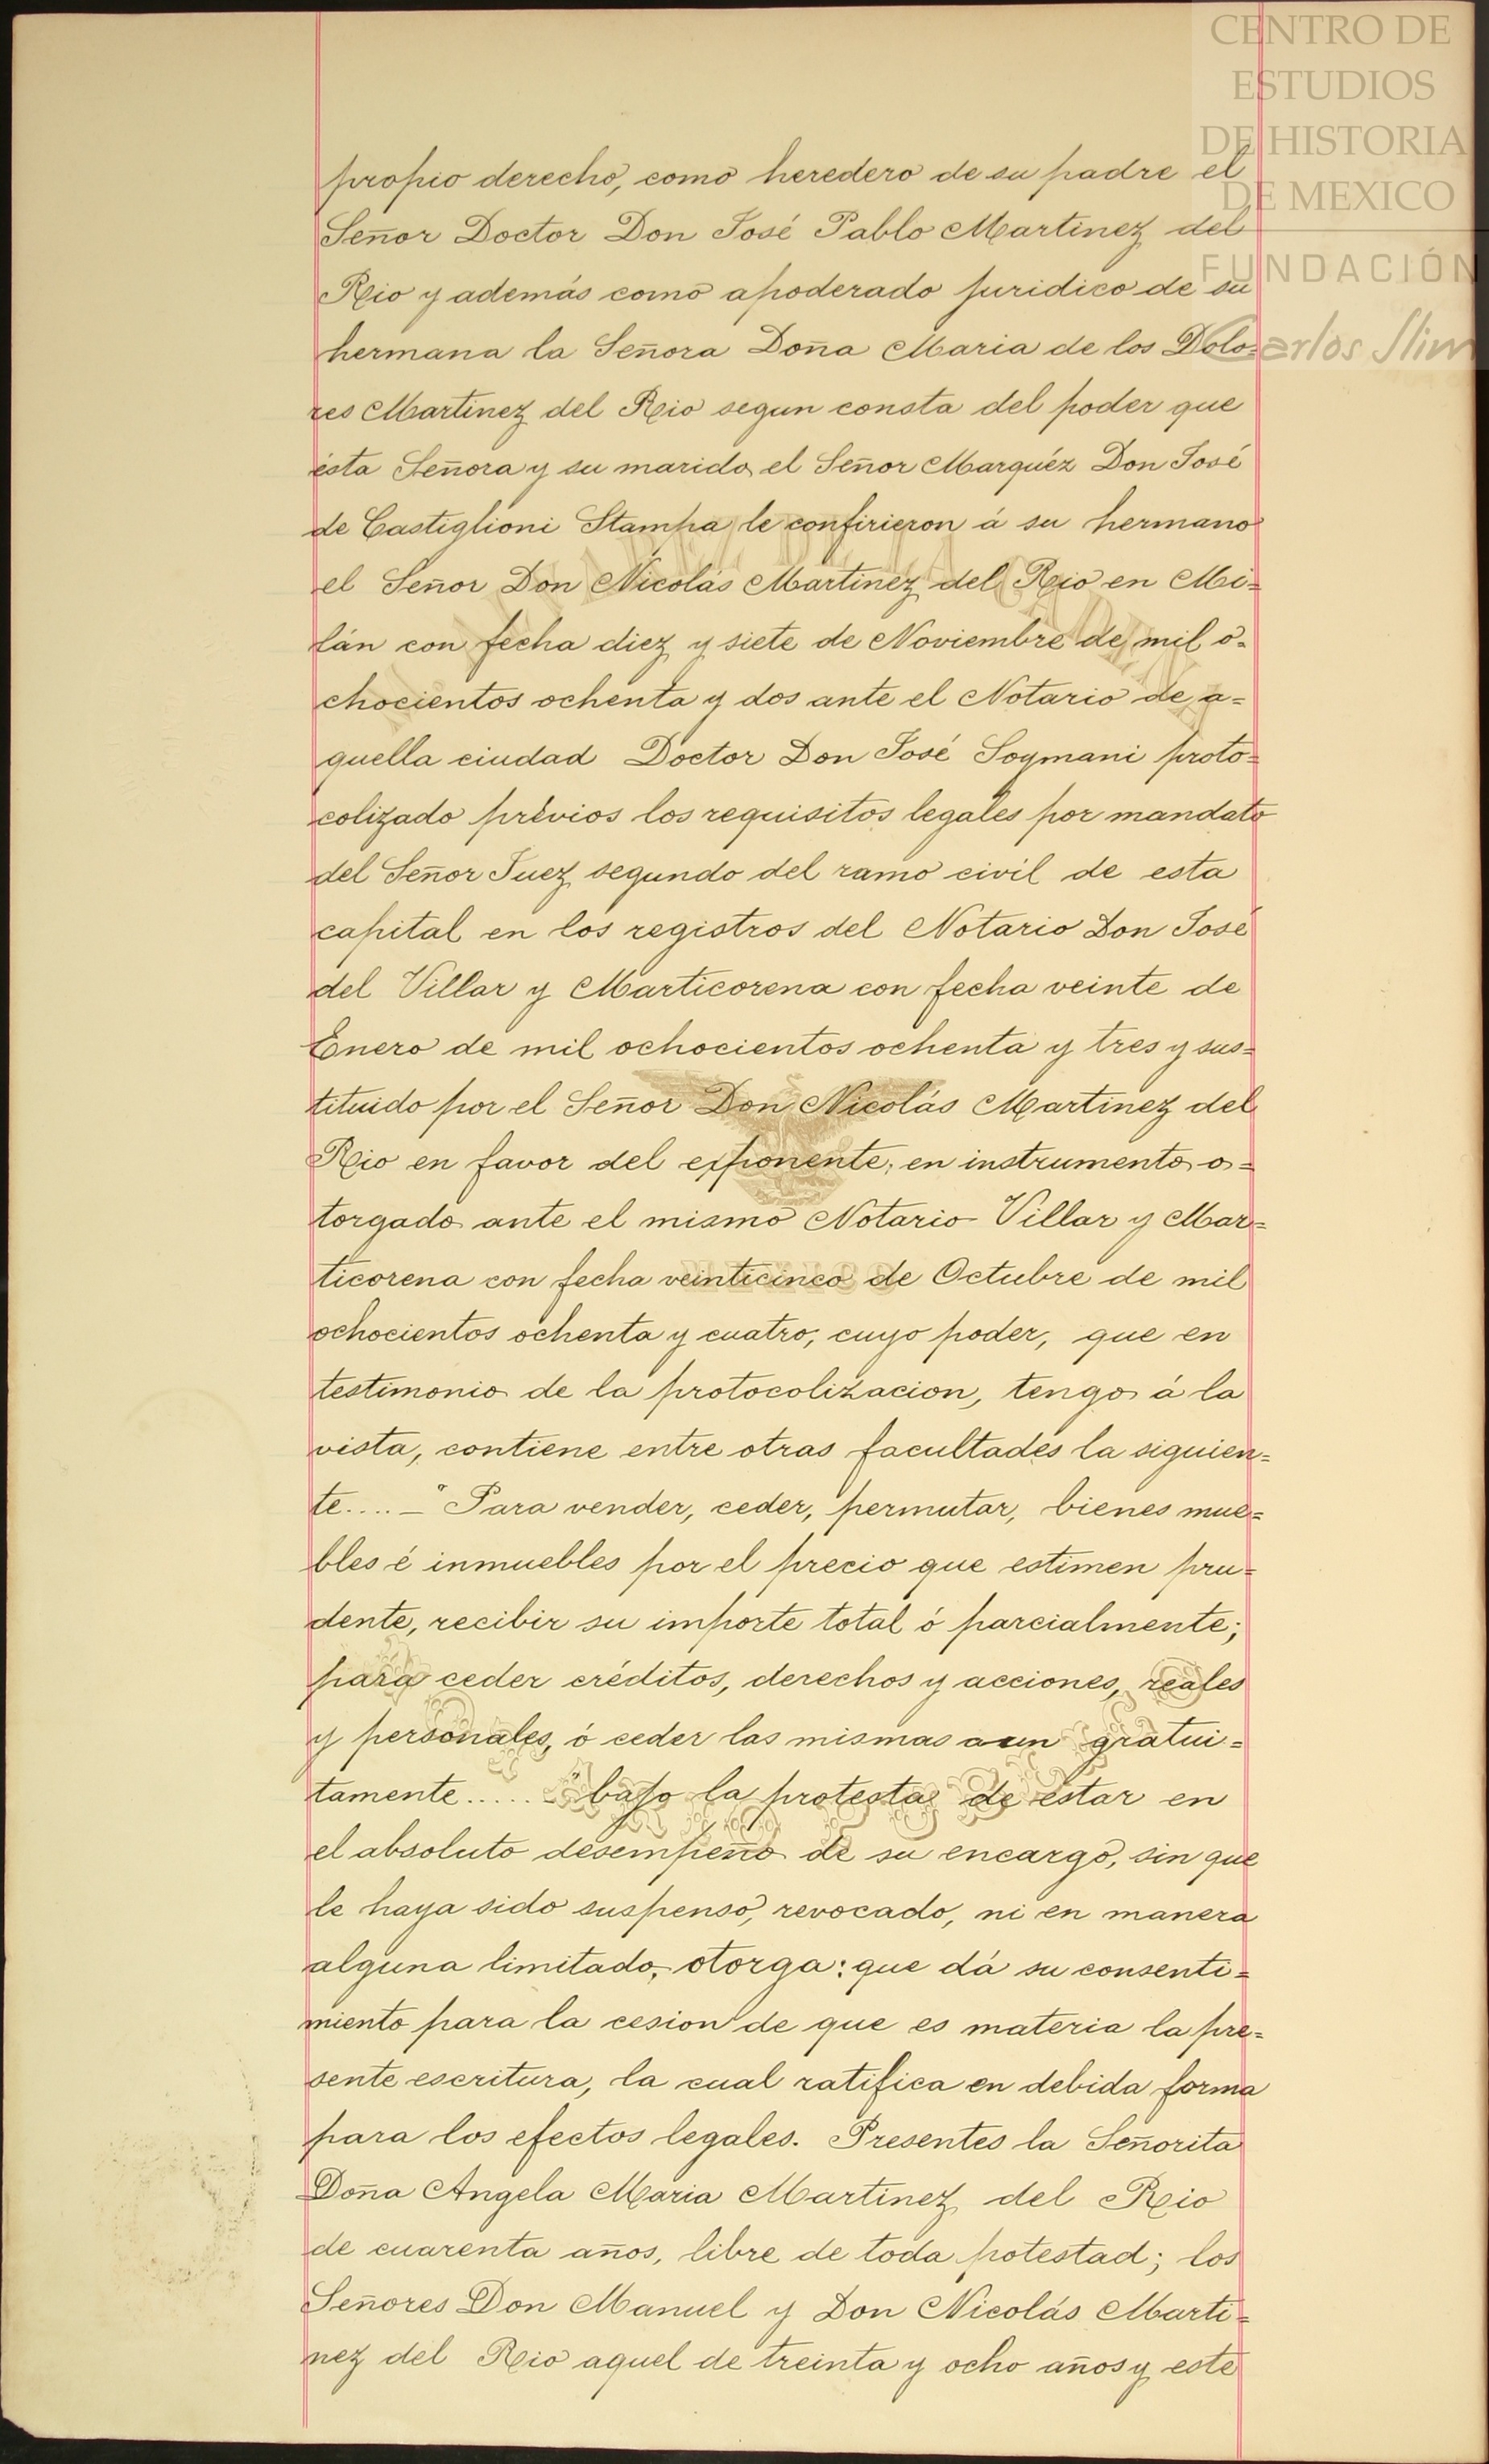 CENTRO DE
ESTUDIOS
DE HISTORIA
DE MEXICO
FUNDACIÓN
Carlos Slim
propio derecho, como heredero de su padre el
Señor Doctor Don José Pablo Martinez del
Rio y además como apoderado juridico de su
hermana la Señora Doña Maria de los Dolo=
res Martinez del Rio segun consta del poder que
ésta Señora y su marido el Señor Marquéz Don José
de Castiglioni Stampa le confirieron á su hermano
el Señor Don Nicolás Martinez del Rio en Mi=
lán con fecha diez y siete de Noviembre de mil o=
chocientos ochenta y dos ante el Notario de a=
quella ciudad Doctor Don José Soymani proto=
colizado prévios los requisitos legales por mandato
del Señor Juez segundo del ramo civil de esta
capital en los registros del Notario Don José
del Villar y Marticorena con fecha veinte de
Enero de mil ochocientos ochenta y tres y sus=
tituido por el Señor Don Nicolás Martinez del
Rio en favor del exponente, en instrumento o=
torgado ante el mismo Notario Villar y Mar=
ticorena con fecha veinticinco de Octubre de mil
ochocientos ochenta y cuatro, cuyo poder, que en
testimonio de la protocolizacion, tengo á la
vista, contiene entre otras facultades la siguien=
te.... — "Para vender, ceder, permutar, bienes mue=
bles é inmuebles por el precio que estimen pru=
dente, recibir su importe total ó parcialmente;
para ceder créditos, derechos y acciones, reales
y personales, ó ceder las mismas aun gratui=
tamente......" bajo la protesta de estar en
el absoluto desempeño de su encargo, sin que
le haya sido suspenso, revocado, ni en manera
alguna limitado, otorga: que dá su consenti=
miento para la cesion de que es materia la pre=
sente escritura, la cual ratifica en debida forma
para los efectos legales. Presentes la Señorita
Doña Angela Maria Martinez del Rio
de cuarenta años, libre de toda potestad; los
Señores Don Manuel y Don Nicolás Marti=
nez del Rio aquel de treinta y ocho años y este